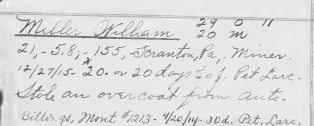 Miller, William 29 0 11
20 M
21,-5.8,-155, Scranton, Pa, Miner.
12/27/15- $20. or 20 days Co J. Pet. Larc.
Stole an overcoat from auto.
Billings, Mont #1213- 4/20/14-30d. Pet. Larc.